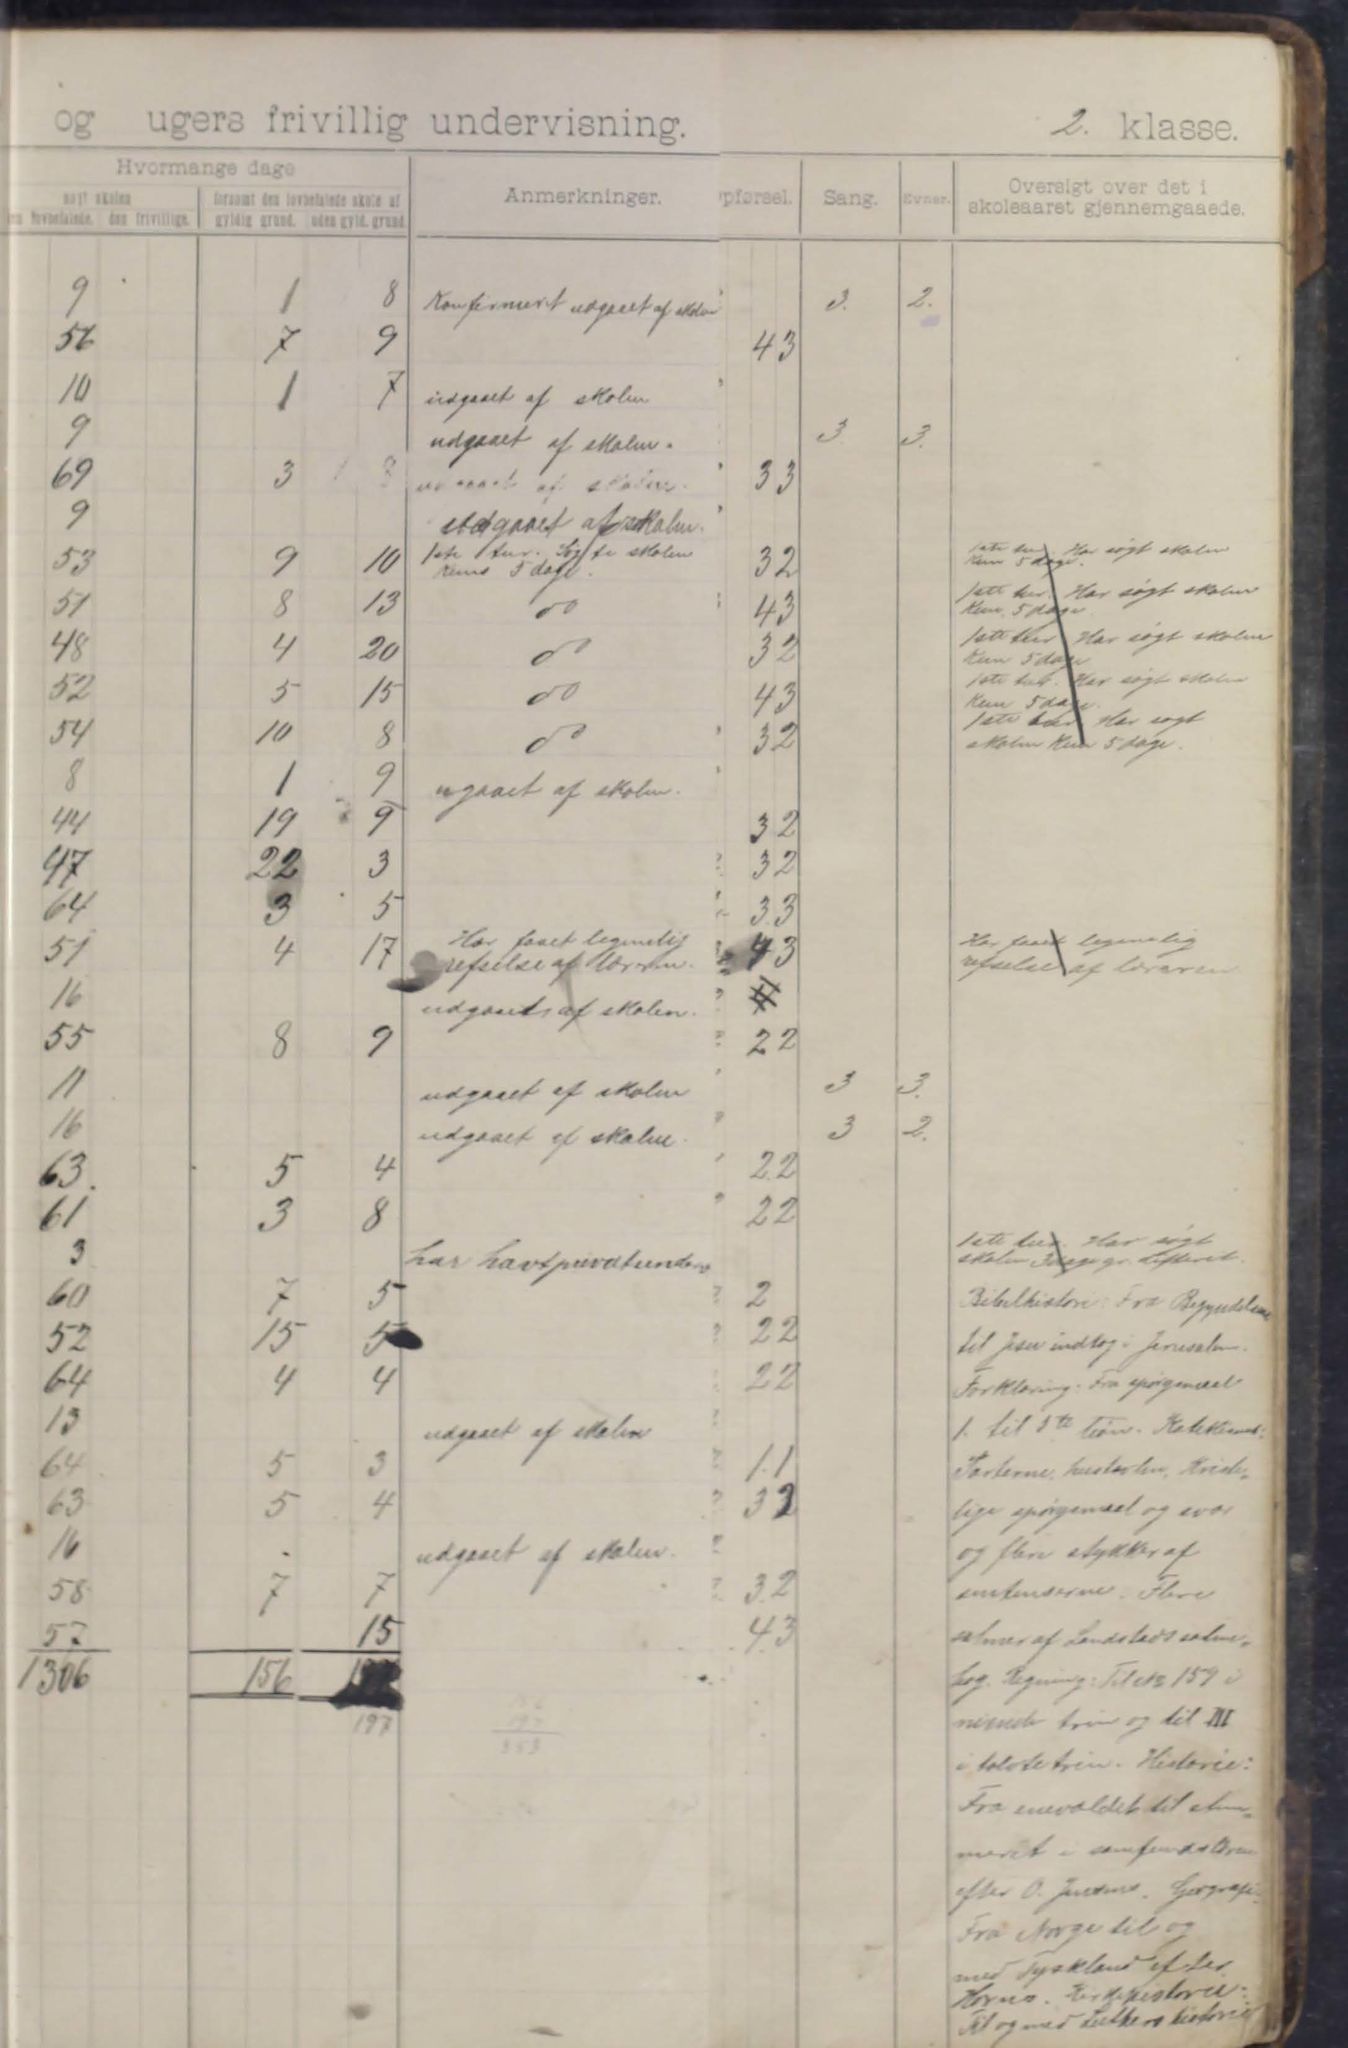 og ugers frivillig undervisning. 2. klasse.
Hvormange dage
søgt skolen
den lovbefalede. den frivillige.
forsømt den lovbefalede skole af
gyldig grund. uden gyld. grund.
Anmerkninger.
opførsel. Sang. Evner.
Oversigt over det i
skoleaaret gjennemgaaede.
9 1 8 Konfirmeret udgaaet af skolen 3. 2.
56 7 9 43
10 1 7 udgaaet af skolen
9 udgaaet af skolen. 3 3.
69 3 udgaaet af skolen. 33
9 udgaaet af skolen.
53 9 10 1ste tur. Søgte skolen 32 1ste tur. Har søgt skolen
kuns 5 dage. kun 5 dage.
51 8 13 do 43 1ste tur. Har søgt skolen
kun 5 dage
48 4 20 do 32 1ste tur Har søgt skolen
kun 5 dage
52 5 15 do 43 1ste tur. Har søgt skolen
kun 5 dage.
54 10 8 do 32 1ste tur Har søgt
skolen kun 5 dage.
8 1 9 ugaaet af skolen.
44 19 9 32
47 22 3 32
64 3 5 3.3
51 4 17 Har faaet legemlig 43 Har faaet legemlig
refselse af læreren. refselse af læreren
16 udgaaet af skolen.
55 8 9 22
11 udgaaet af skolen 3 3.
16 udgaaet af skolen. 3 2.
63. 5 4 2.2
61 3 8 22
3 har havt privatunderv 1ste tur. Har søgt
skolen 3 dage gr. difterit.
60 7 5 2 Bibelhistorie: Fra Begyndelsen
52 15 5 22 til Jesu indtog i Jerusalem.
64 4 4 22 Forklaring: Fra spørgsmaal
13 udgaaet af skolen 1. til 5te bøn. Katekismus:
64 5 3 1.1 Parterne, hustavlen, Kriste-
63 5 4 32 lige spørgsmaal og svar
16 udgaaet af skolen. og flere stykker af
58 7 7 3.2 sentenserne. Flere
57 15 4.3 salmer af Landstads salme-
1306 156 bog. Regning: Til № 159 i
197 niende trin og til III
156
197
353
i tolvte trin. Historie:
Fra enevældet til
i samfundslæren
efter O. Jensens. Geografi:
Fra Norge til og
med Tyskland efter
Horns. Kirkehistorie:
Til og med Luthers historie